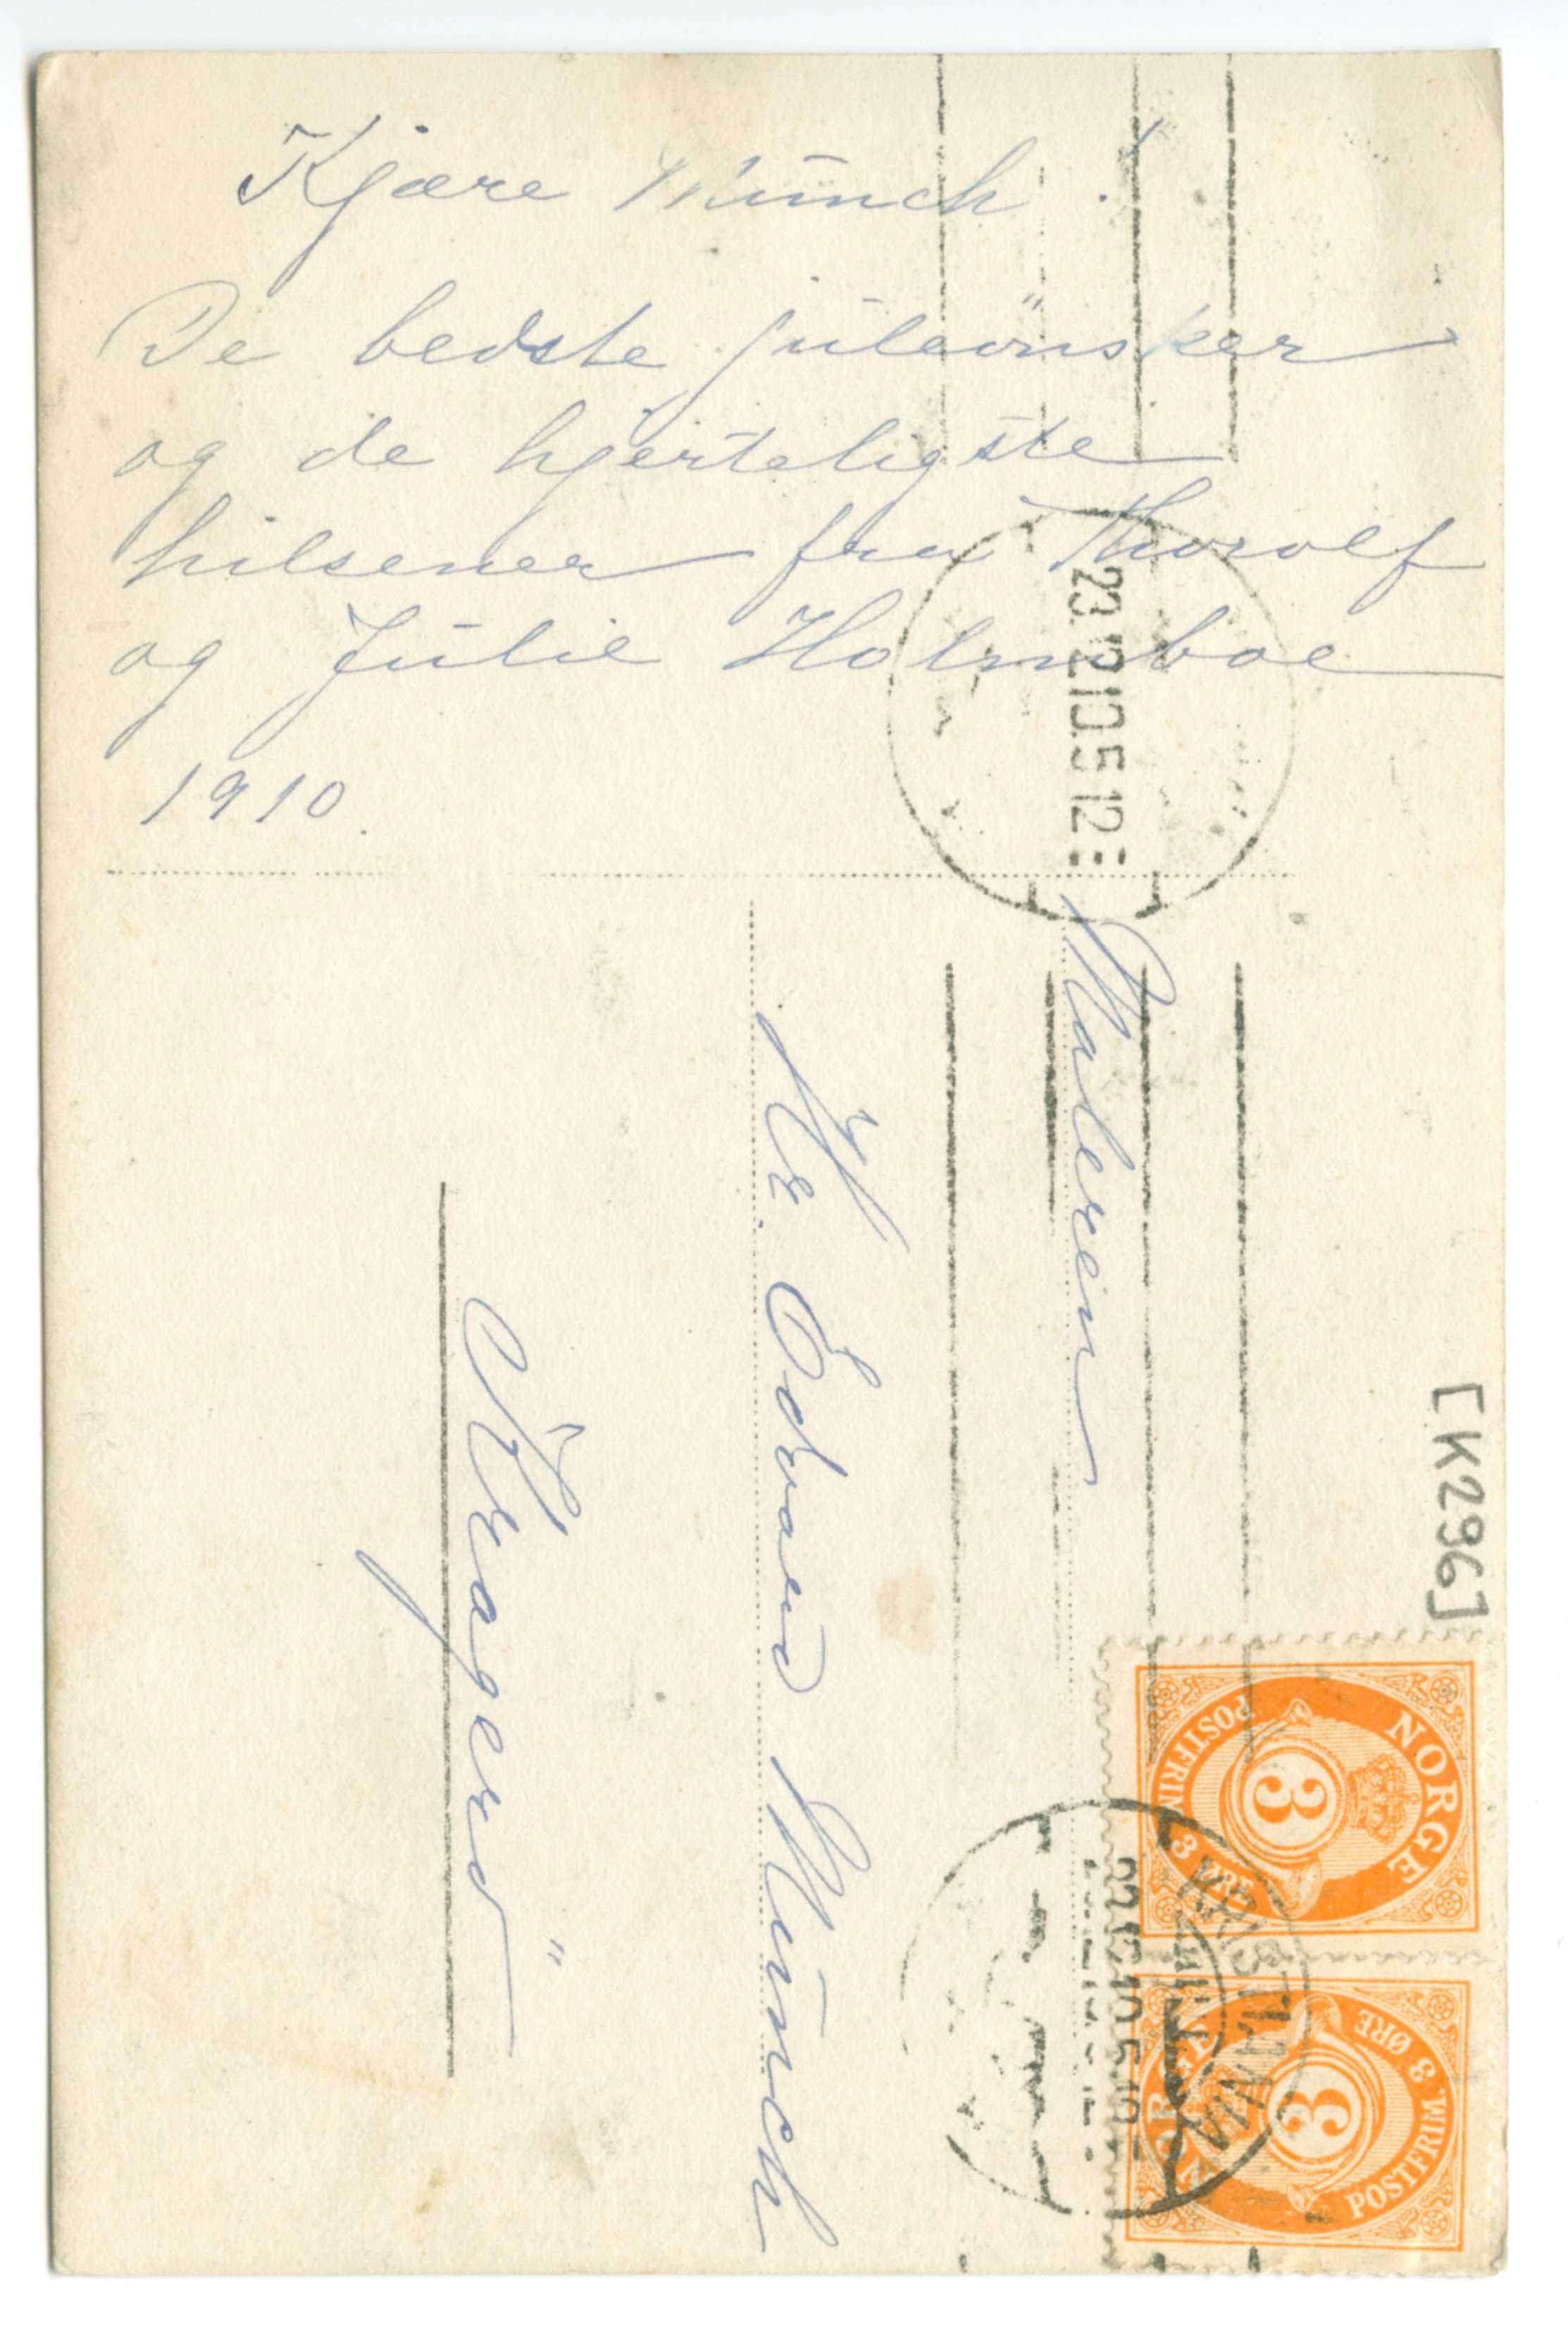 Kjære Munch!
De bedste juleönsker
og de hjerteligste
hilsener fra Thorolf
og Julie Holmboe
1910.
Maleren
Hr. Edvard Munch
Kragerö
[K296]
NORGE
POSTFRIM 3 ØRE
3
NORGE
POSTFRIM 3 ØRE
3
KRISTIANIA
23.12.10.5-12